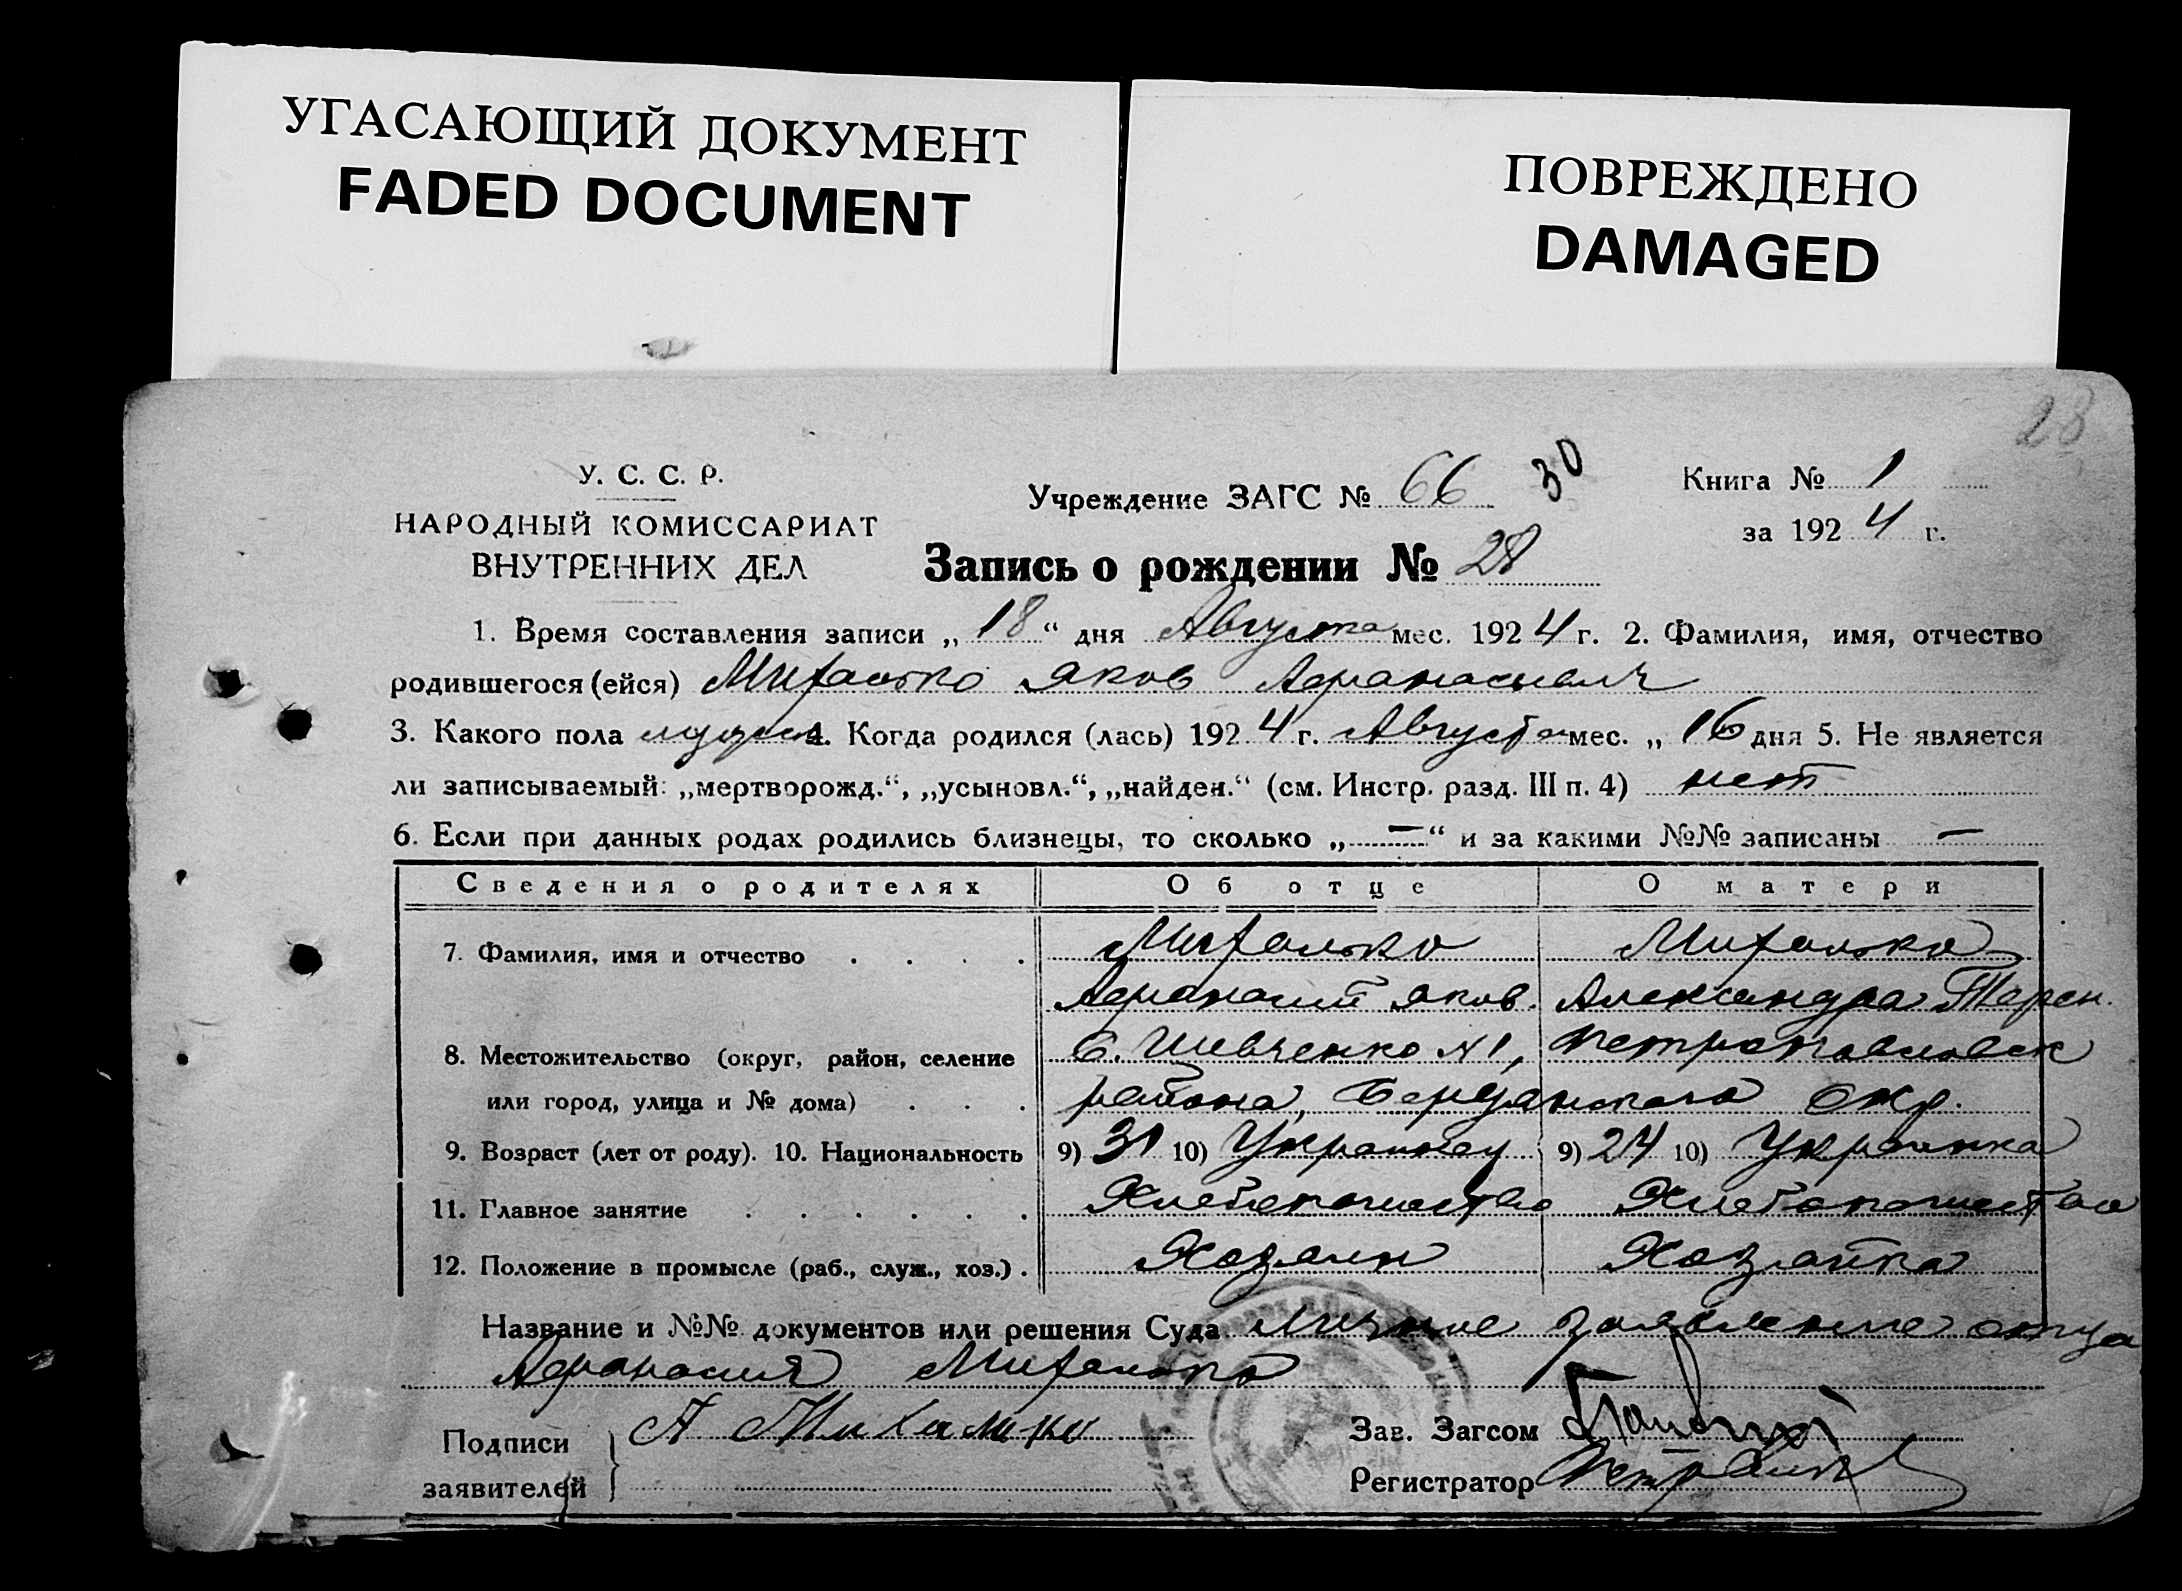 УГАСАЮЩИЙ ДОКУМЕНТ
FADED DOCUMENT
ПОВРЕЖДЕНО
DAMAGED
28
У. С. С. Р.
НАРОДНЫЙ КОМИССАРИАТ
ВНУТРЕННИХ ДЕЛ
Учреждение ЗАГС № 66 30
Книга № 1
за 1924 г.
Запись о рождении № 28
1. Время составления записи „18“ дня Августа мес. 1924 г. 2. Фамилия, имя, отчество
родившегося (ейся) Михалько Яков Афанасиевич
3. Какого пола мужск 4. Когда родился (лась) 1924 г. Августа мес. „16 дня 5. Не является
ли записываемый: „мертворожд.“, „усыновл.“, „найден.“ (см. Инстр. разд. III п. 4) нет
6. Если при данных родах родились близнецы, то сколько „—“ и за какими №№ записаны —
Сведения о родителях Об отце О матери
7. Фамилия, имя и отчество Михалько Михалько
Афанасий Яков. Александра Терен.
8. Местожительство (округ, район, селение С. Шевченко №1, Петропавловск
или город, улица и № дома) района, Бердянского окр.
9. Возраст (лет от роду). 10. Национальность 9) 31 10) Украинец 9) 24 10) Украинка
11. Главное занятие Хлебопашество Хлебопашество
12. Положение в промысле (раб., служ., хоз.) Хозяин Хозяйка
Название и №№ документов или решения Суда Личное заявление отца
Афанасия Михалько
Подписи А Михалько
заявителей
Зав. Загсом
Регистратор